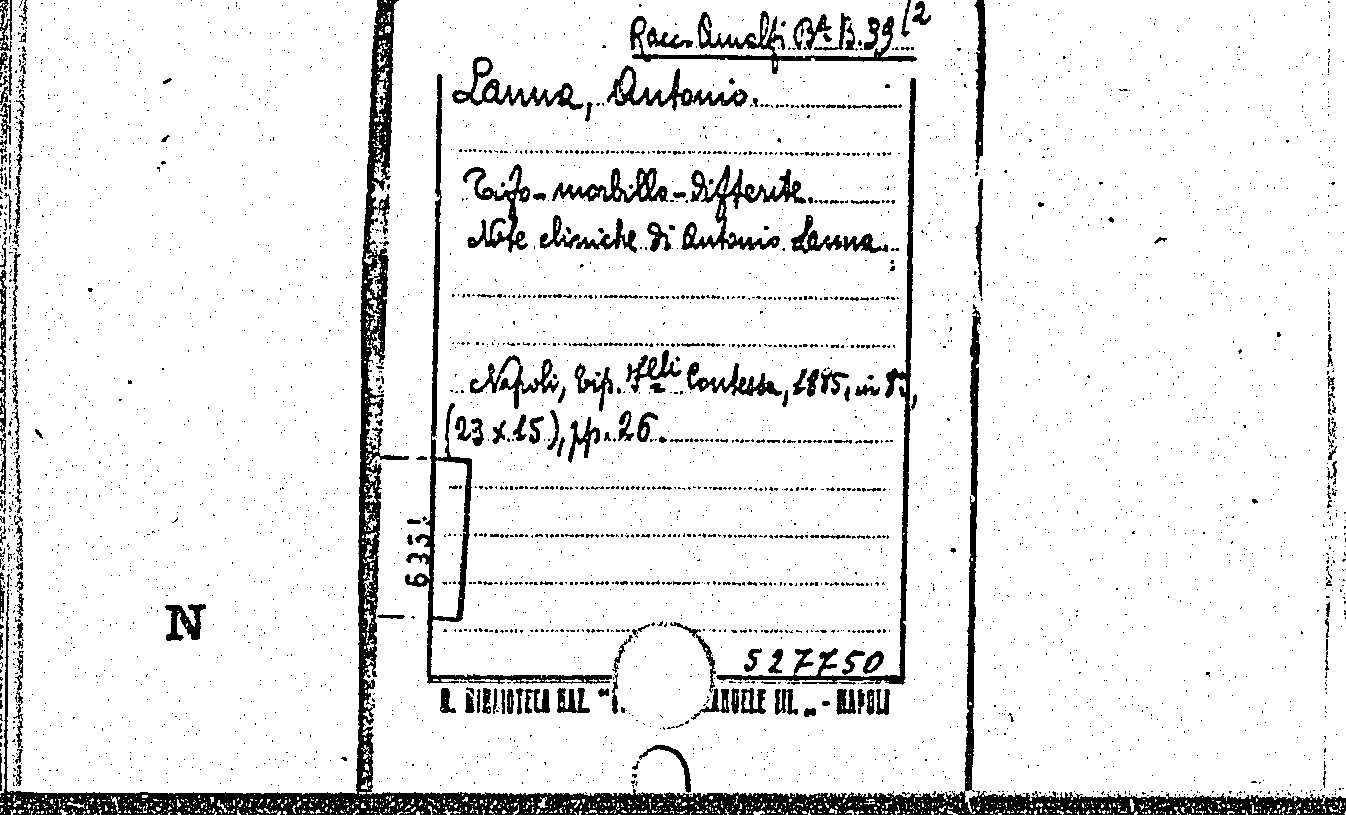 Racc. Amalfi Bª B. 39 (2
Lanna, Antonio.
Tifo - morbillo - difterite.
Note cliniche di Antonio Lanna.
Napoli, tip. F.lli Contessa, 1885, in 8º,
(23 x 15), pp. 26.
6351
N
527750
R. BIBLIOTECA NAZ. "V. ANUELE III. „ - NAPOLI